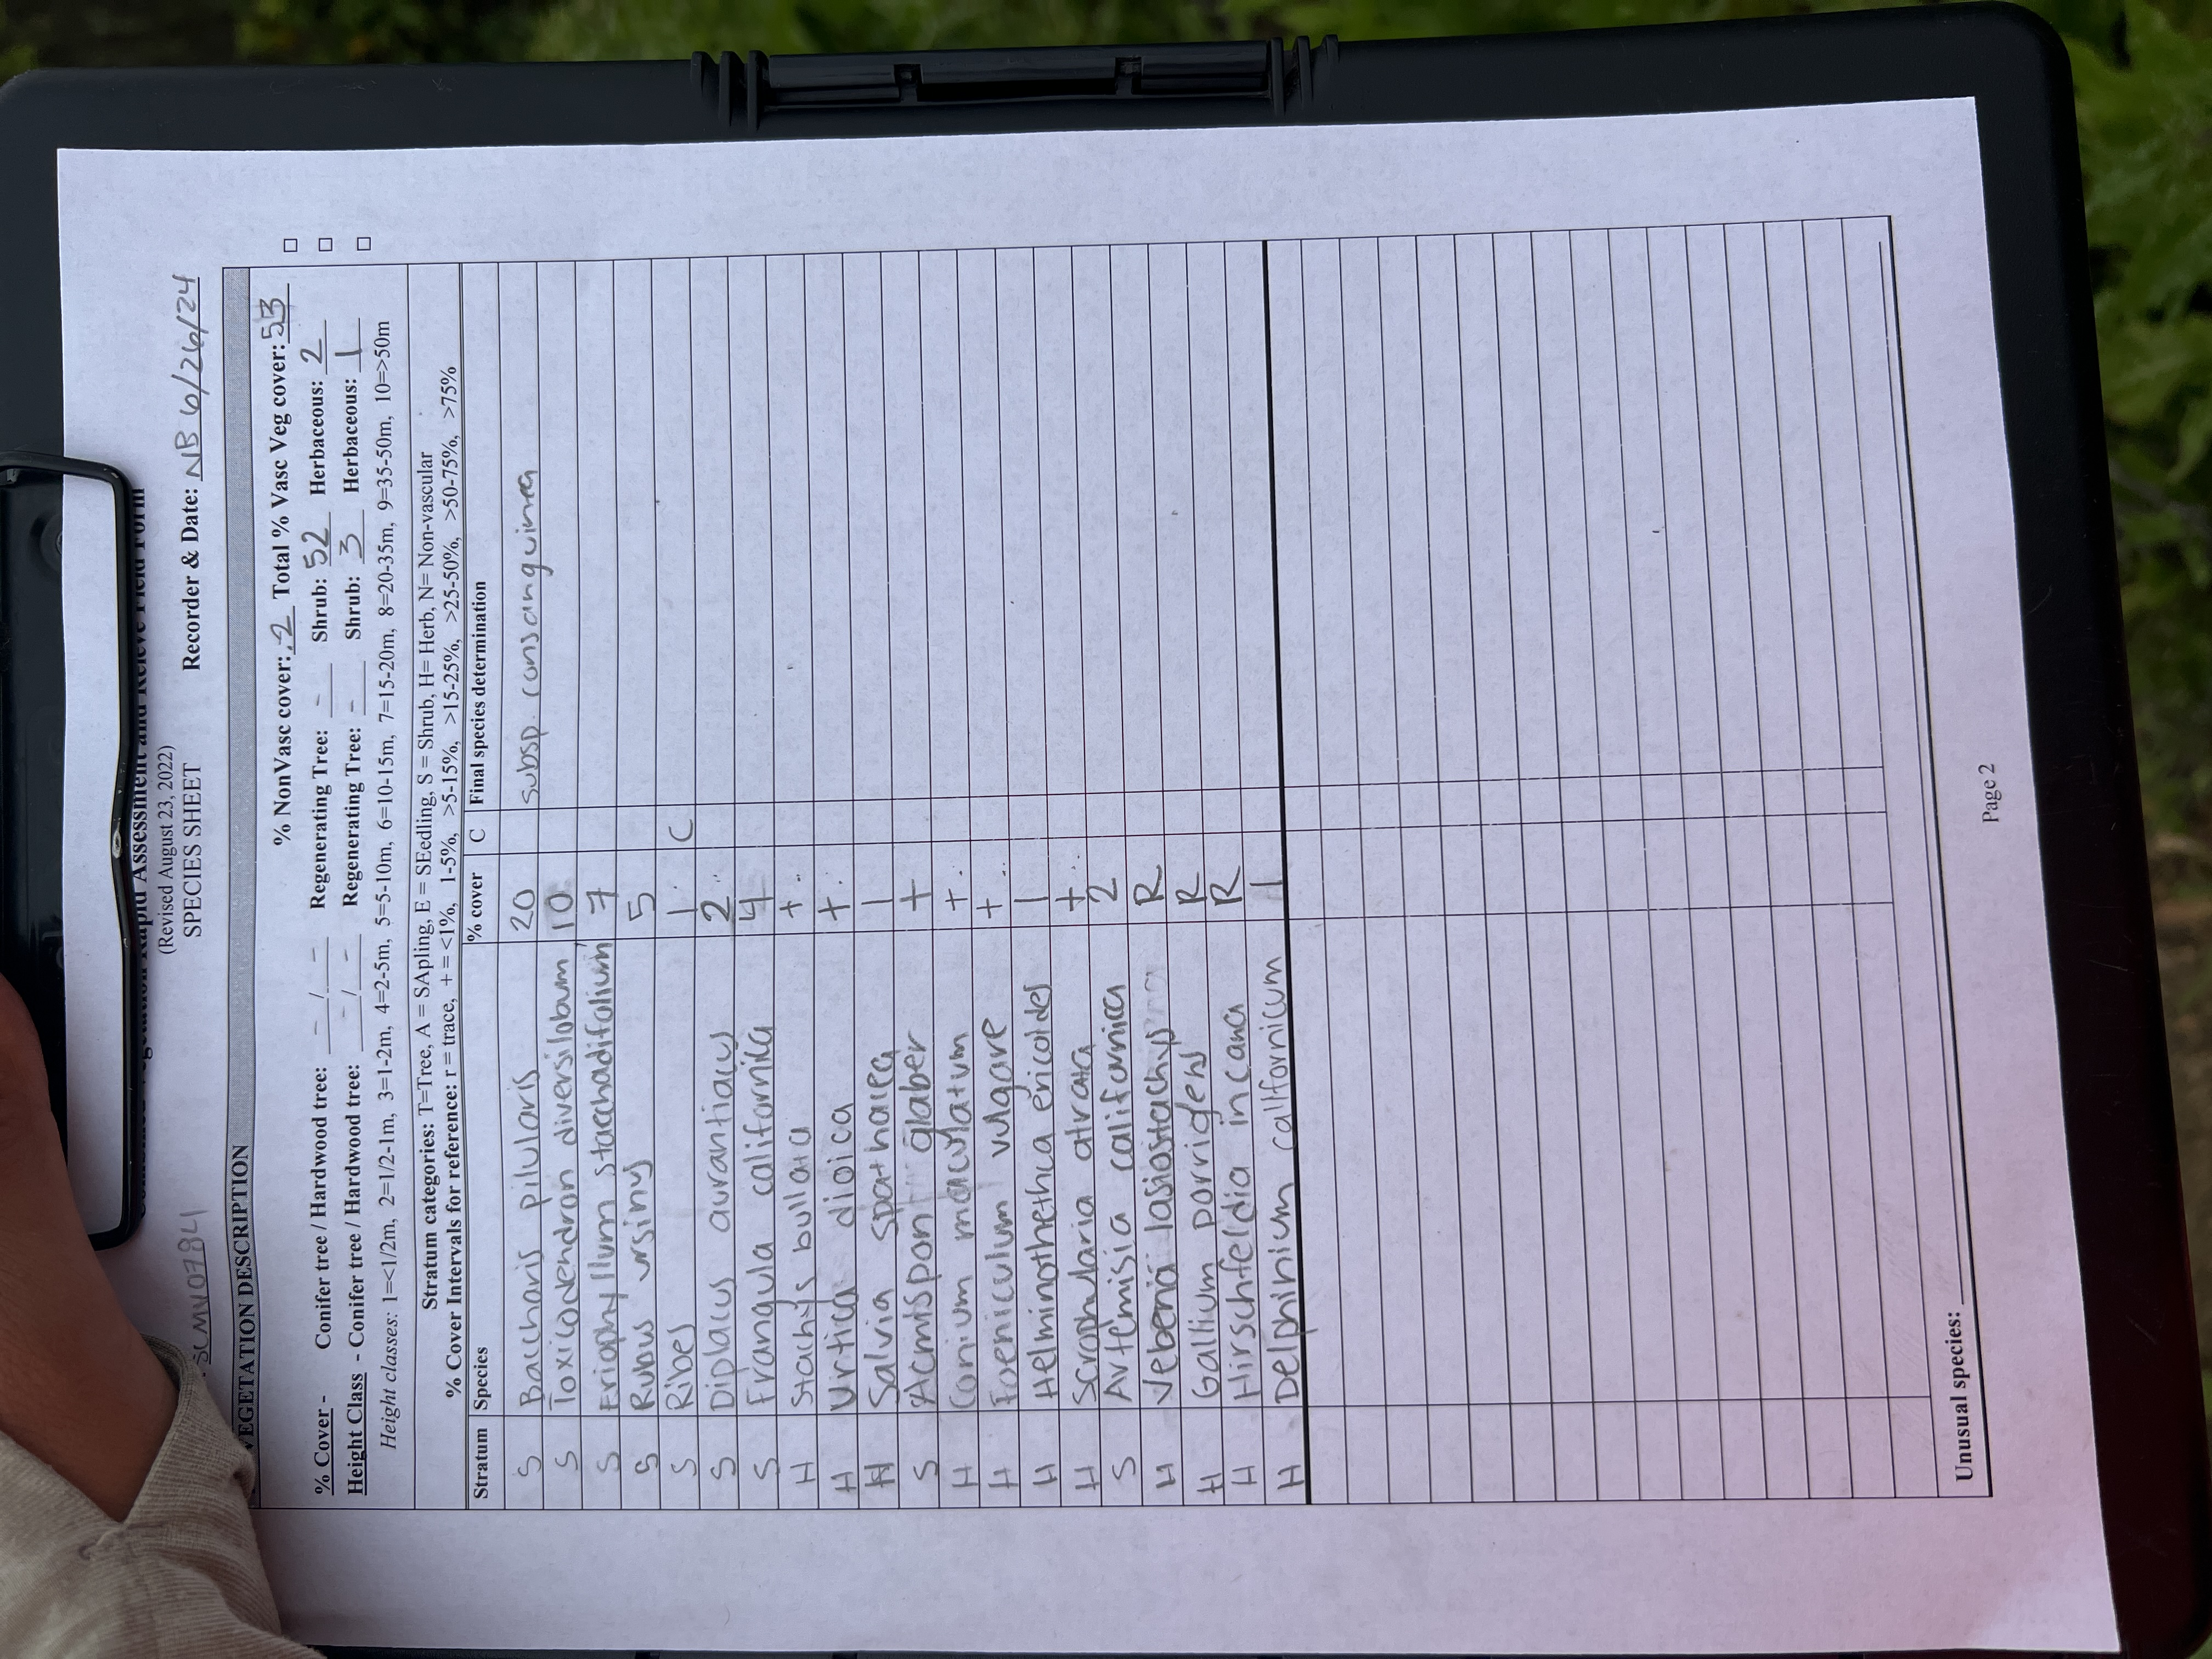 Combined Vegetation Rapid Assessment and Relevé Field Form
(Revised August 23, 2022)
SCMV0784 SPECIES SHEET Recorder & Date: NB 6/26/24
VEGETATION DESCRIPTION
% NonVasc cover: .2 Total % Vasc Veg cover: 53
% Cover - Conifer tree / Hardwood tree: - / - Regenerating Tree: - Shrub: 52 Herbaceous: 2
Height Class - Conifer tree / Hardwood tree: - / - Regenerating Tree: - Shrub: 3 Herbaceous: 1
Height classes: 1=<1/2m, 2=1/2-1m, 3=1-2m, 4=2-5m, 5=5-10m, 6=10-15m, 7=15-20m, 8=20-35m, 9=35-50m, 10=>50m
Stratum categories: T=Tree, A = SApling, E = SEedling, S = Shrub, H= Herb, N= Non-vascular
% Cover Intervals for reference: r = trace, + = <1%, 1-5%, >5-15%, >15-25%, >25-50%, >50-75%, >75%
Stratum Species % cover C Final species determination
S Baccharis pilularis 20 subsp. consanguinea
S Toxicodendron diversilobum 10
S Eriophyllum staechadifolium 7
S Rubus ursinus 5
S Ribes 1 C
S Diplacus aurantiacus 2
S Frangula californica 4
H Stachys bullata +
H Urtica dioica +
H Salvia spathacea 1
S Acmispon glaber +
H Conium maculatum +
H Foeniculum vulgare +
H Helminothethca ericoides 1
H Scrophularia atrata +
S Artemisia californica 2
H Vebena lasiostachys R
H Gallium porrigens R
H Hirschfeldia incana R
H Delphinium californicum 1
Unusual species:
Page 2